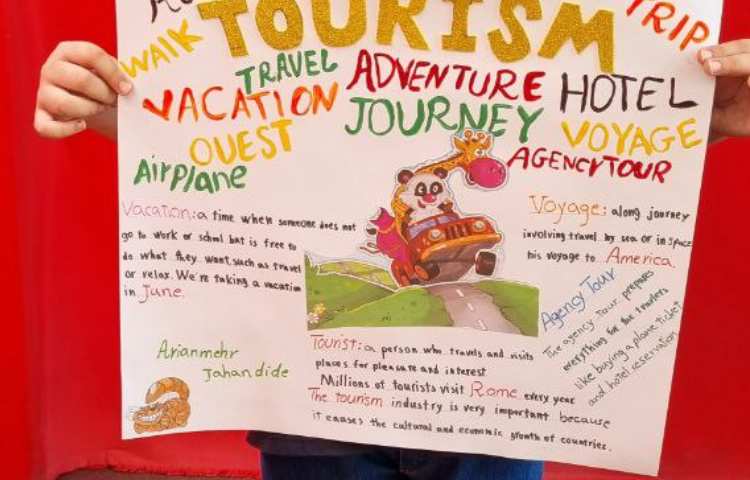 TOURISM
TRIP
WALK
TRAVEL
ADVENTURE
HOTEL
VACATION
JOURNEY
VOYAGE
OUEST
AGENCY TOUR
Airplane
Vacation: a time when someone does not
go to work or school but is free to
do what they want, such as travel
or relax. We're taking a vacation
in June.
Voyage: along journey
involving travel by sea or in space
his voyage to America.
Agency Tour
The agency tour prepares
everything for the travelers
like buying a plane ticket
and hotel reservation
Arianmehr
Jahandide
Tourist: a person who travels and visits
places for pleasure and interest
Millions of tourists visit Rome every year
The tourism industry is very important because
it causes the cultural and economic growth of countries.